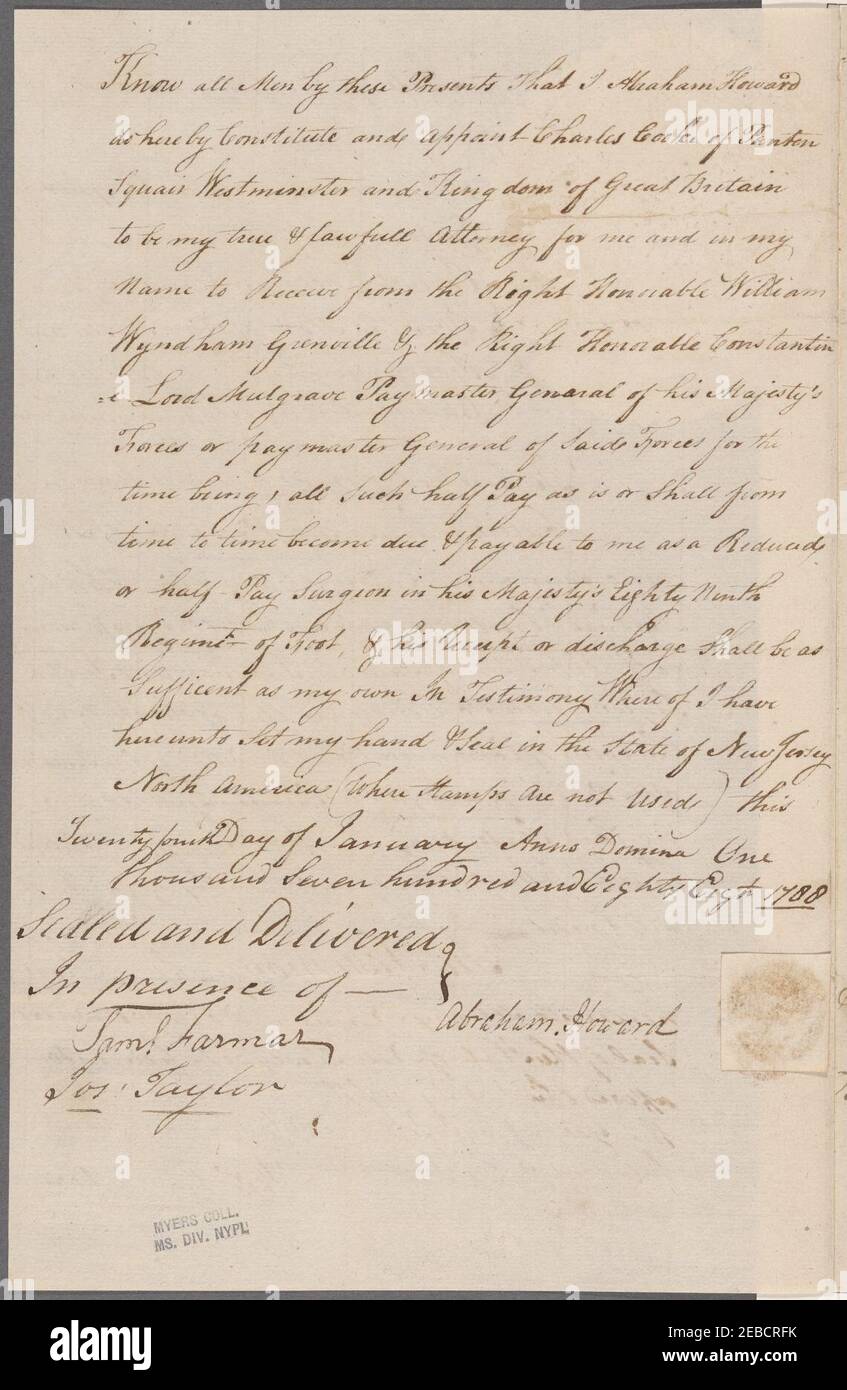 Know all Men by these Presents That I Abraham Howard
do hereby Constitute and appoint Charles Cooke of Panton
Squair Westminster and Kingdom of Great Britain
to be my true & lawfull Attorney for me and in my
Name to Receive from the Right Honorable William
Wyndham Grenville & the Right Honorable Constantin
=e Lord Mulgrave Paymaster General of his Majesty's
Forces or paymaster General of Said Forces for the
time being, all such half Pay as is or Shall from
time to time become due & payable to me as a Reduced
or half Pay Surgeon in his Majesty's Eighty Ninth
Regimt of Foot, & his Receipt or discharge Shall be as
Sufficent as my own In Testimony Where of I have
hereunto Set my hand & Seal in the State of New Jersey
North America (Where Stamps are not Used) this
Twenty fourth Day of January Anno Domina One
thousand Seven hundred and Eighty Eight 1788
Sealed and Delivered
In presence of
Saml. Farmar
Abraham Howard
Jos. Taylor
MYERS COLL.
MS. DIV. NYPL
alamy
Image ID: 2EBCRFK
www.alamy.com